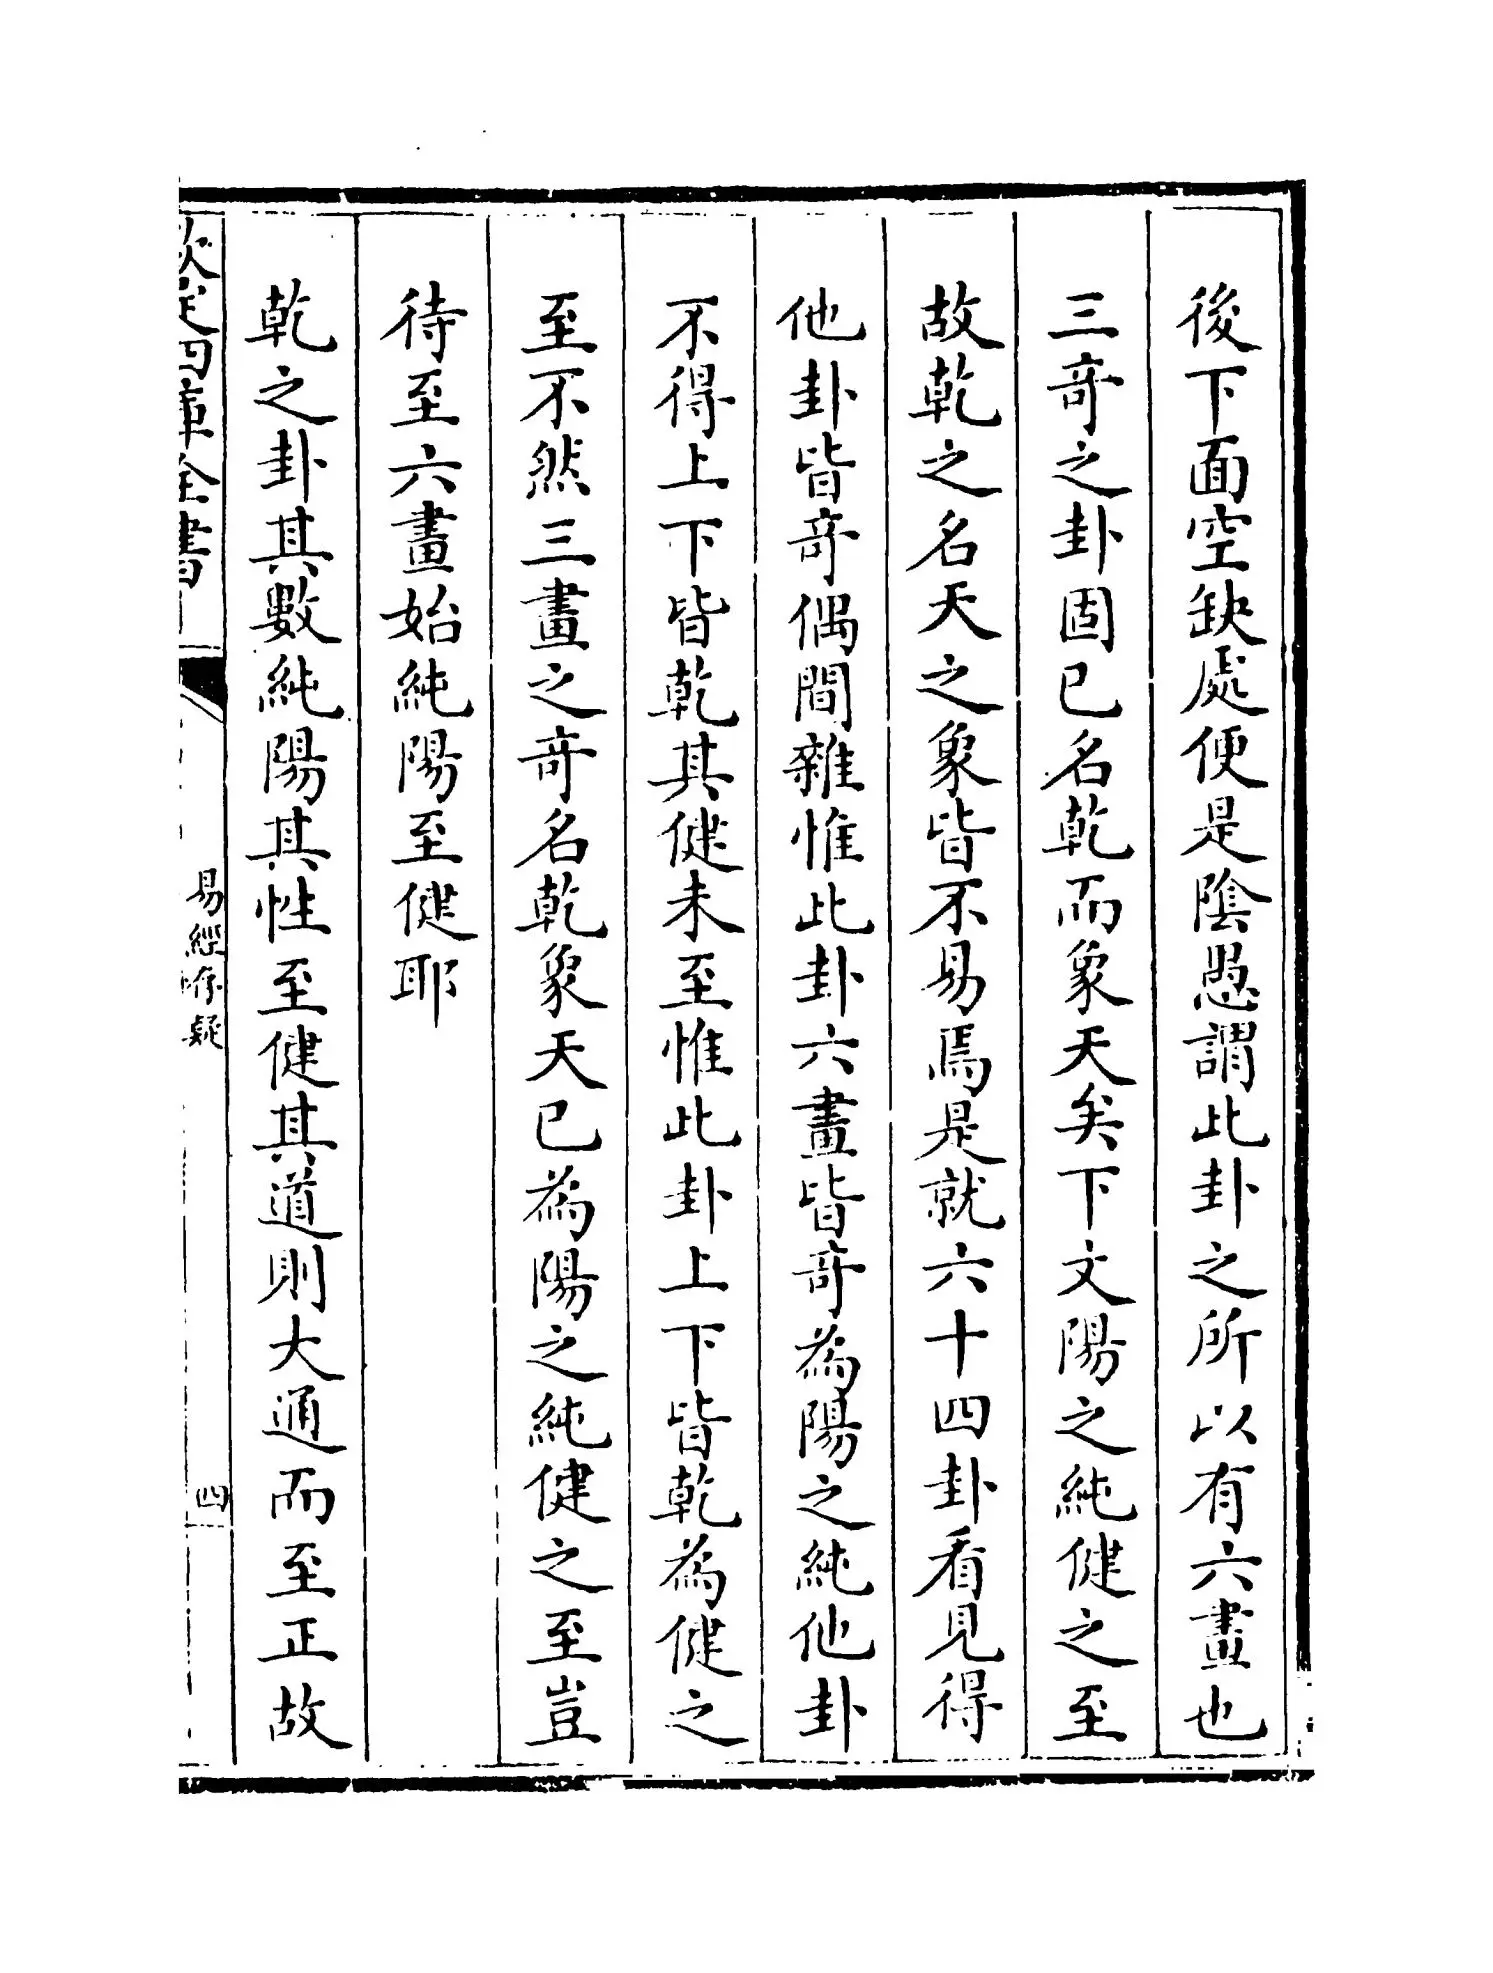 後下面空缺處便是陰愚謂此卦之所以有六畫也
三奇之卦固已名乾而象天矣下文陽之純健之至
故乾之名天之象皆不易焉是就六十四卦看見得
他卦皆奇偶間雜惟此卦六畫皆奇為陽之純他卦
不得上下皆乾其健未至惟此卦上下皆乾為健之
至不然三畫之奇名乾象天已為陽之純健之至豈
待至六畫始純陽至健耶
乾之卦其數純陽其性至健其道則大通而至正故
欽定四庫全書
易經存疑
四